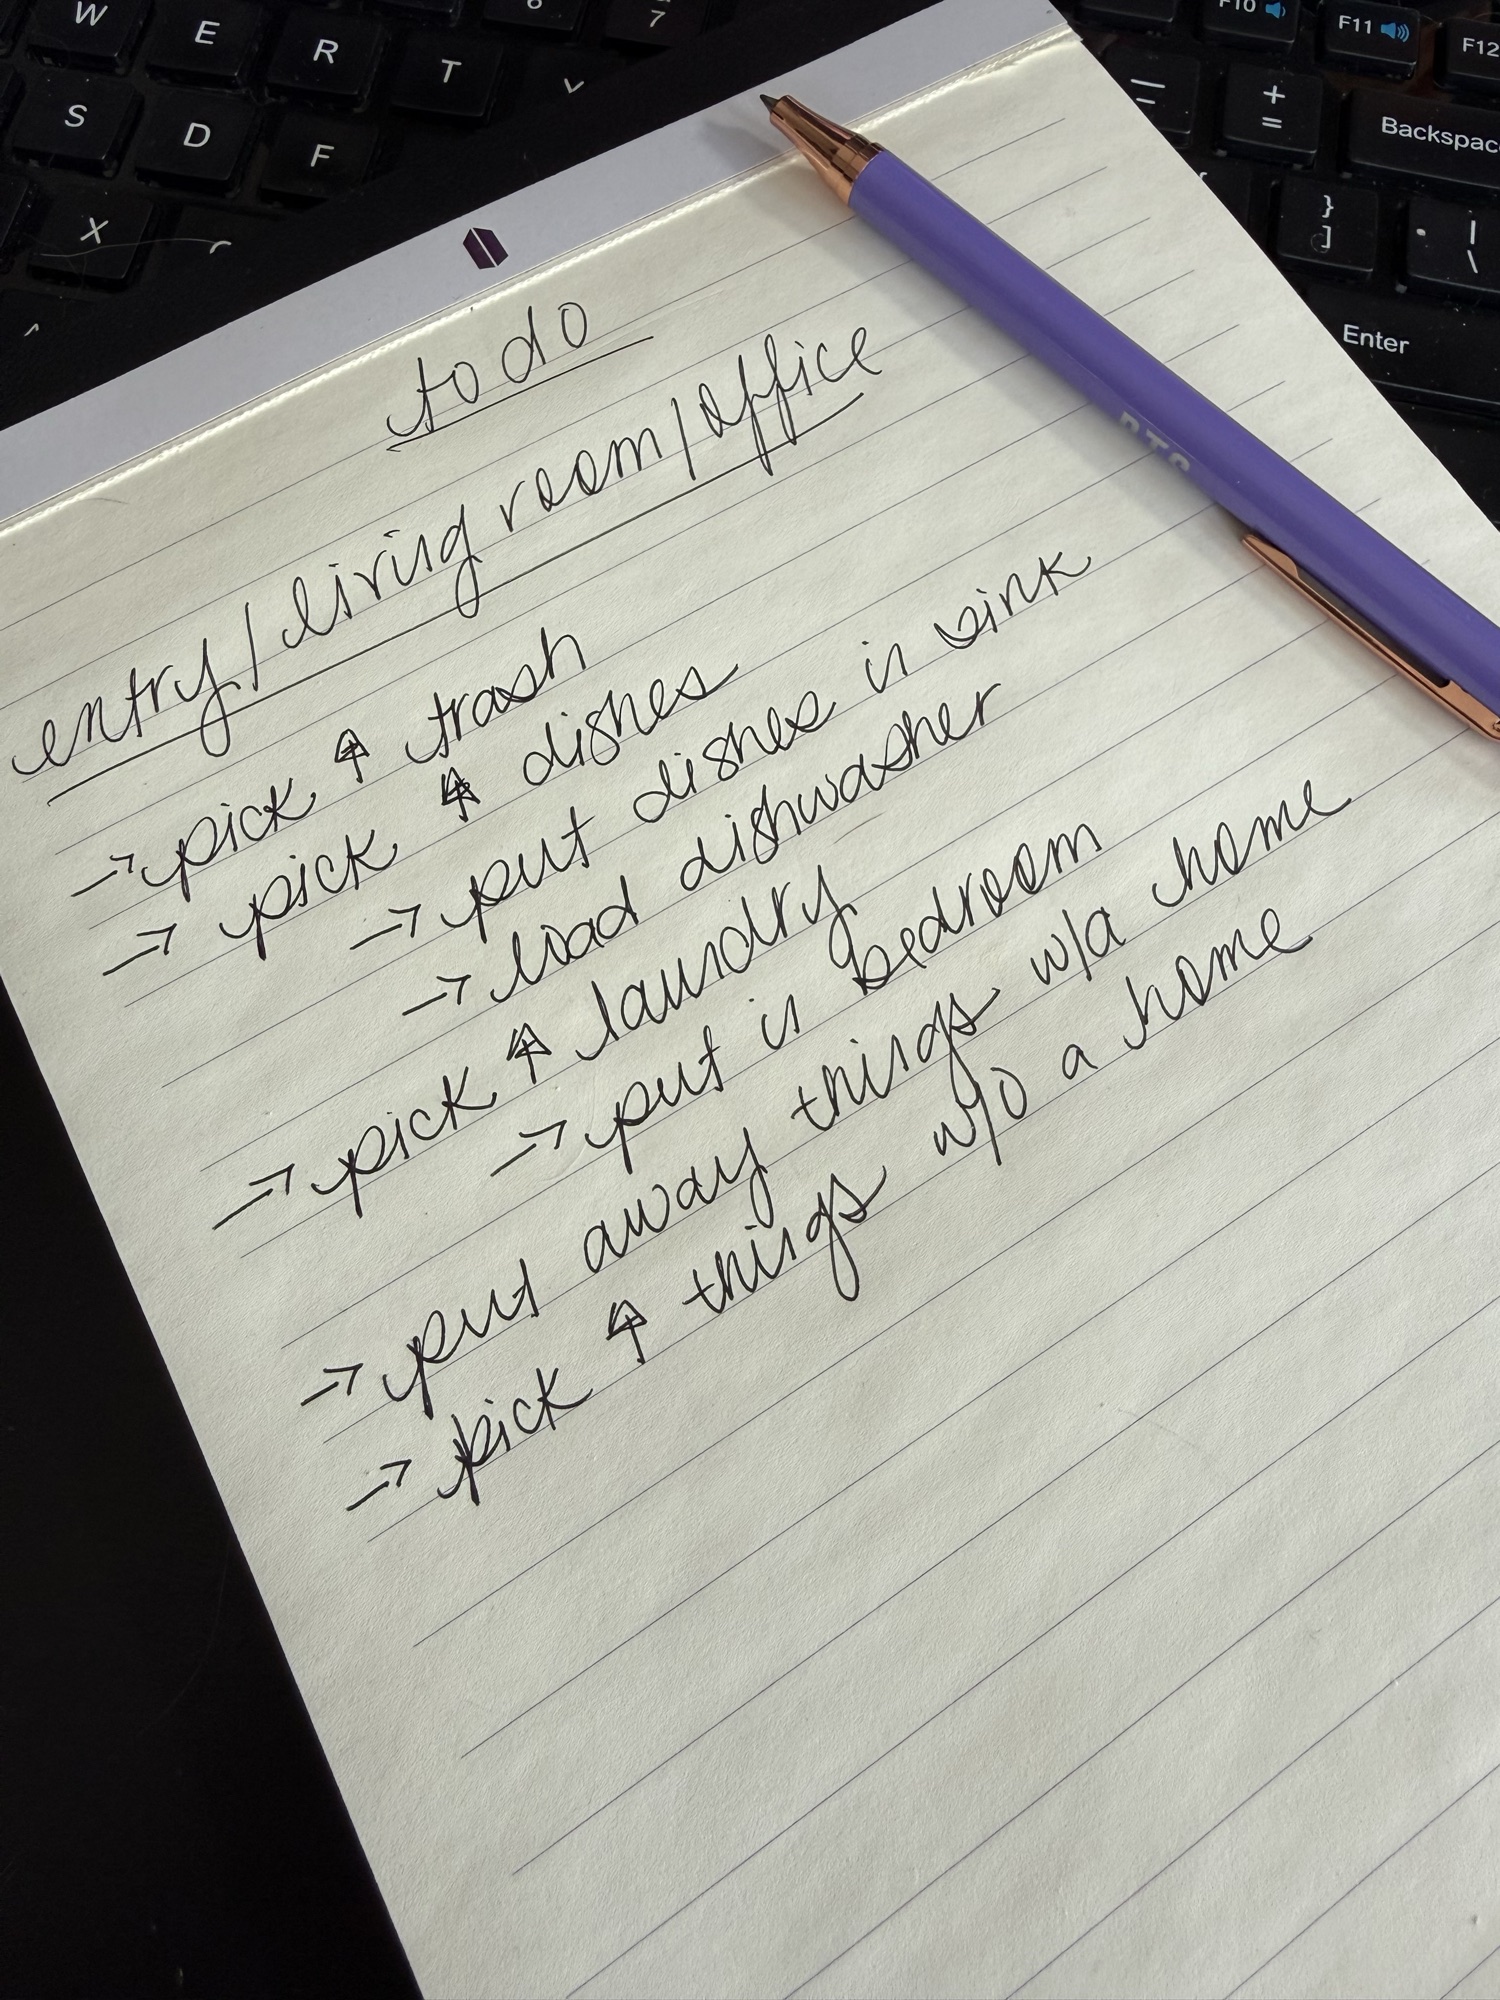 W E R T 6 7 F10 F11 F12
S D F + = Backspac
X } ] | \
Enter
BTS
to do
entry/living room/office
→ pick ↑ trash
→ pick ↑ dishes
→ put dishes in sink
→ load dishwasher
→ pick ↑ laundry
→ put in bedroom
→ put away things w/a home
→ pick ↑ things w/o a home